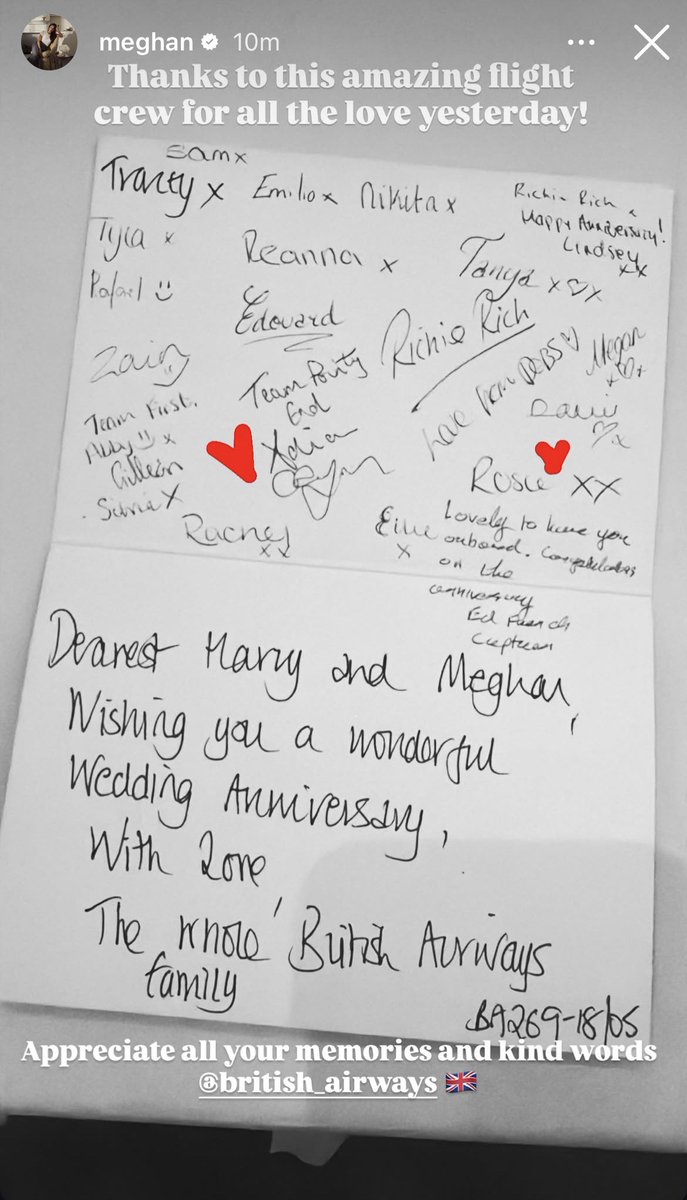 meghan 10m
Thanks to this amazing flight
crew for all the love yesterday!
Sam x
Tracey x
Emilio x
Nikita x
Richie Rich x
Happy Anniversary!
Lindsey
xx
Tyla x
Reanna x
Tanya x♡x
Rafael :)
Edouard
Richie Rich
Megan
Zain
Team Purity
End
Love from DEBS ♡
Team First.
Abby :) x
Gillean
x
Rosie xx
Rachel
xx
x
Lovely to have you
onboard. Congratulations
on the
anniversary
Ed French
Captain
Dearest Harry and Meghan,
Wishing you a wonderful
Wedding Anniversary,
With Love
The whole British Airways
family
BA269-18/05
Appreciate all your memories and kind words
@british_airways 🇬🇧